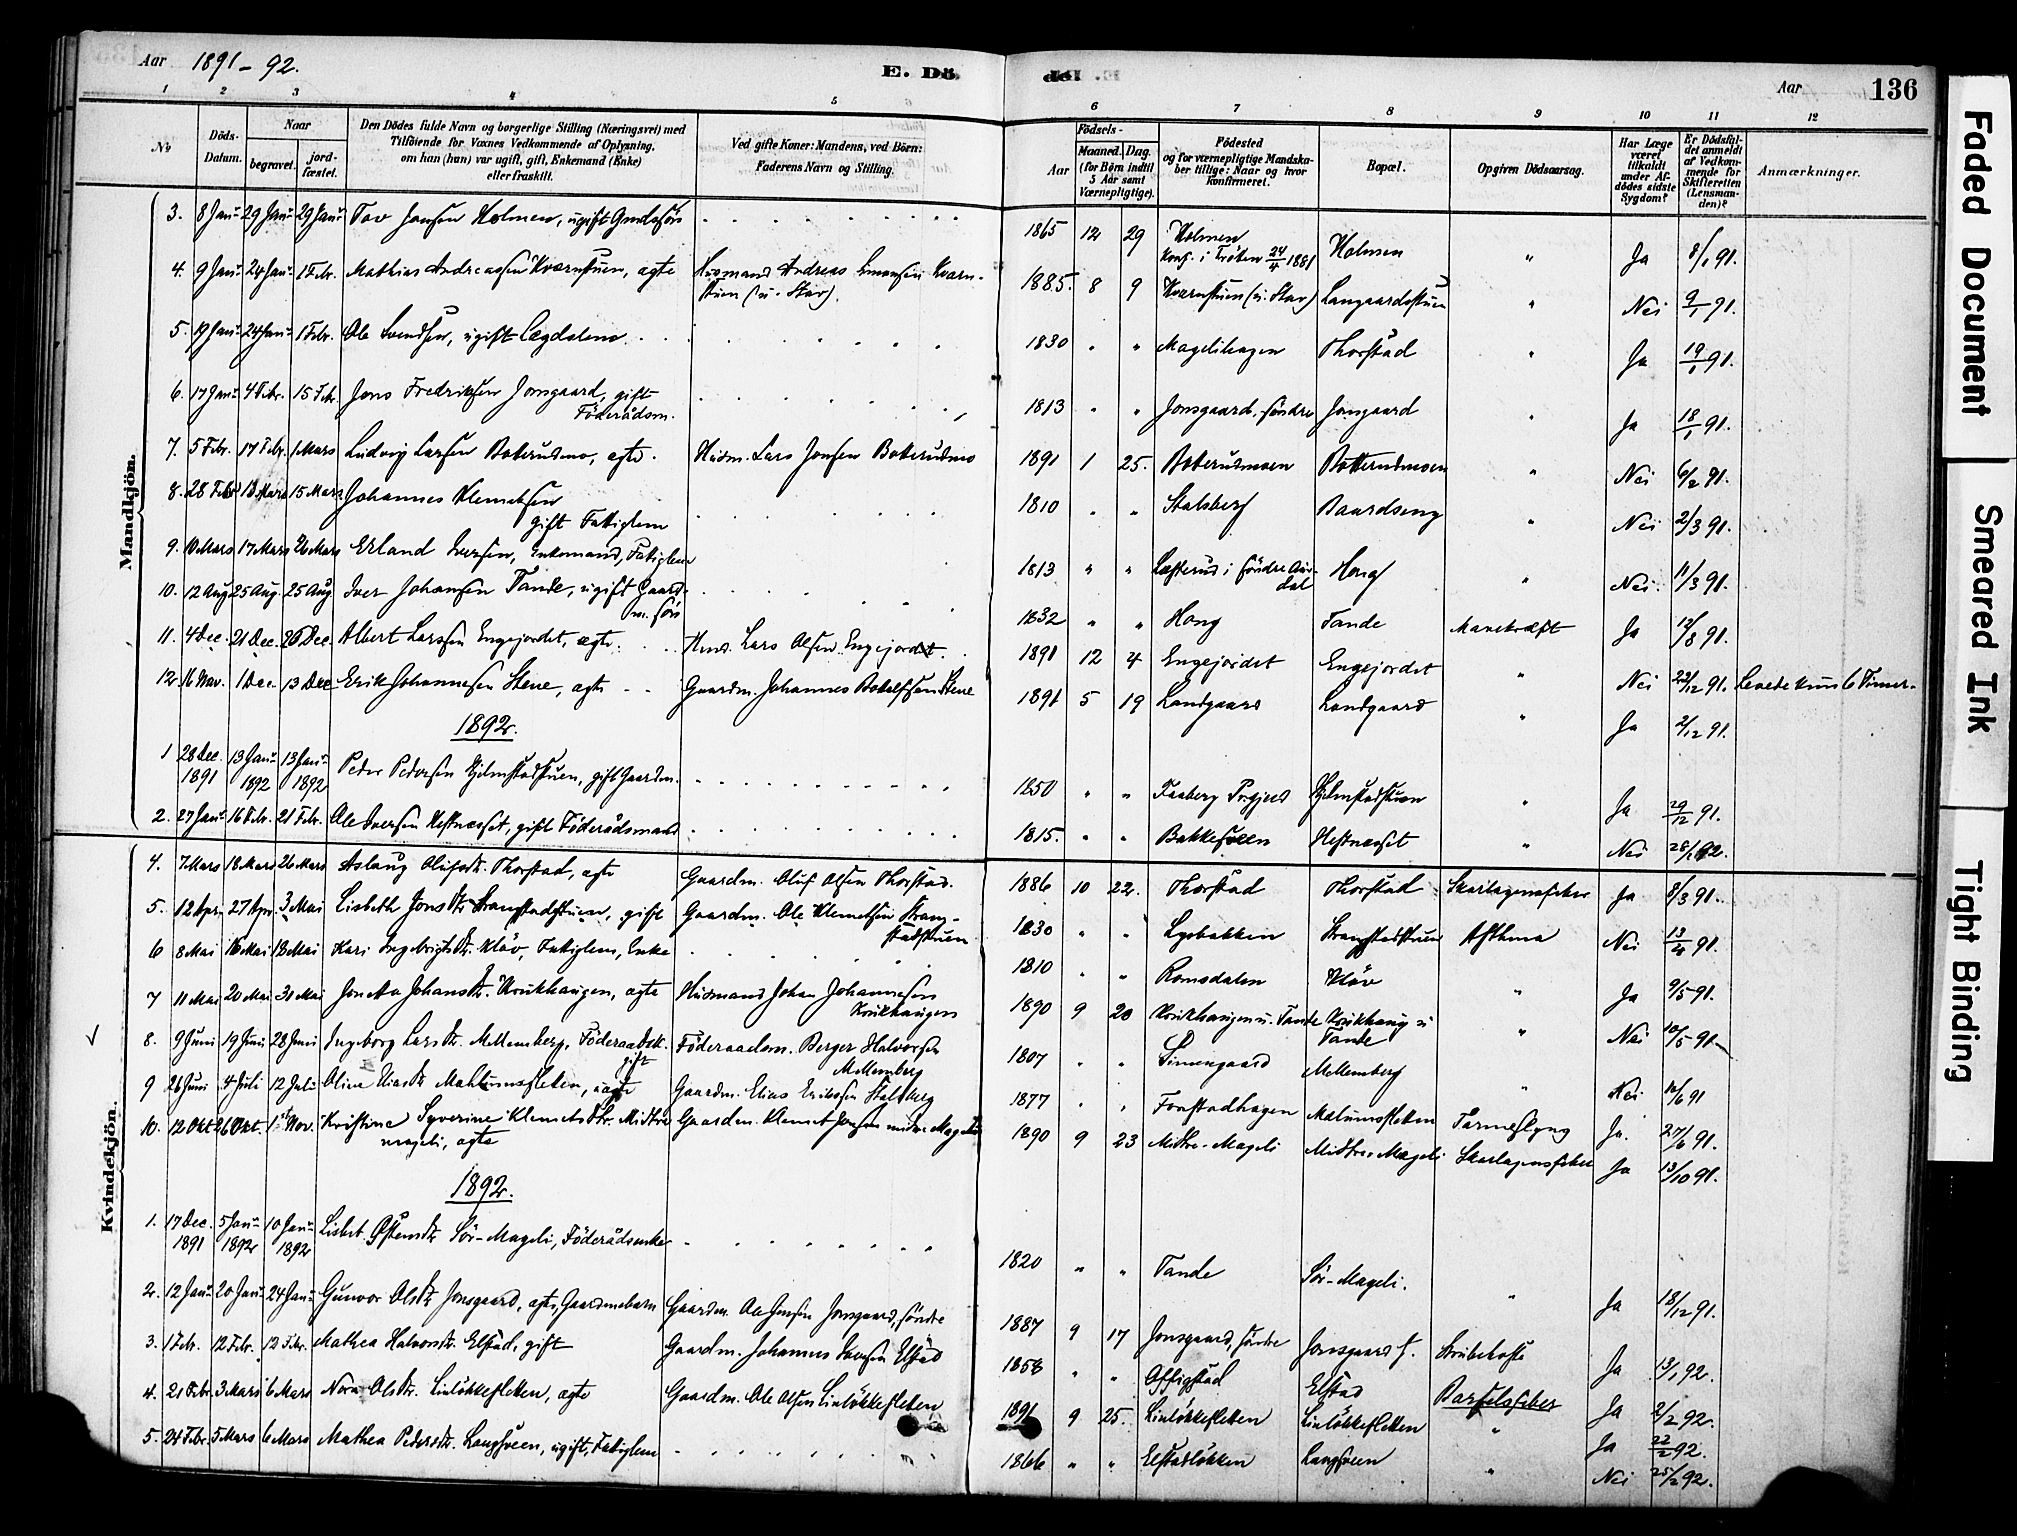 Aar 1891-92. E. Dö de E. Aar 136
1 2 3 4 5 6 7 8 9 10 11 12
№ Döds-Datum. Naar begravet. jord-fæstet. Den Dödes fulde Navn og borgerlige Stilling (Næringsvei) med Tilföiende for Voxnes Vedkommende af Oplysning, om han (hun) var ugift, gift, Enkemand (Enke) eller fraskilt. Ved gifte Koner: Mandens, ved Börn: Faderens Navn og Stilling. Aar Födsels- Maaned. Dag. (for Börn indtil 5 Aar samt Værnepligtige). Födested og for værnepligtige Mandskaber tillige: Naar og hvor konfirmeret. Bopæl. Opgiven Dödsaarsag. Har Læge været tilkaldt under Afdödes sidste Sygdom? Er Dödsfaldet anmeldt af Vedkommende for Skifteretten (Lensmanden)? Anmærkninger.
Mandkjön.
3. 8 Janr 29 Janr 29 Janr Tov Jensen Holmen, ugift Gmdssön 1865 12 29 Holmen Konf. i Tretten 24/4 1881 Holmen " Ja 8/1 91.
4. 9 Janr 24 Janr 1 Febr. Mathias Andreassen Kværnstuen, ægte Husmand Andreas Simensen Kværnstuen (u. Stav). 1885. 8 9 Kværnstuen (u. Stav) Langaardsstuen " Nei 9/1 91.
5. 19 Janr 24 Janr 1 Febr. Ole Svendsen, ugift Lægdslem 1830 " " Magelihagen Thorstad " Ja 19/1 91.
6. 17 Janr 4 Febr. 15 Febr. Jens Fredriksen Jonsgaard, gift Föderådsm. 1813 " " Jonsgaard, söndre Jonsgaard " Ja 18/1 91.
7. 5 Febr. 17 Febr. 1 Mars Ludvig Larsen Botterudmo, ægte. Husm. Lars Jensen Botterudmo 1891 1 25. Botterudmoen Botterudmoen " Nei 6/2 91.
8. 28 Febr 13 Mars 15 Mars Johannes Klemetsen gift Fattiglem 1810 " " Stalsberg Baardseng " Nei 2/3 91.
9. 10 Mars 17 Mars 26 Mars Erland Iversen, Enkemand, Fattiglem 1813 " " Lasterud i söndre Aurdal Hong " Nei. 11/3 91.
10. 12 Aug 25 Aug. 25 Aug Iver Johansen Tande, ugift Gaardm. sön 1832 " " Hong Tande Mavekræft Ja 12/8 91.
11. 4 Dec. 21 Dec. 26 Dec. Albert Larssen Engejordet, ægte. Hmd. Lars Olsen Engejordet. 1891 12 4 Engejordet Engejordet " Nei 22/12 91. Levede kun 6 Timer.
12. 16 Nov. 1 Dec. 13 Dec Erik Johannesen Stene, ægte Gaardm. Johannes Botolfsen Stene 1891 5 19 Landgaard Landgaard " Ja 2/12 91.
1892.
1 28 Dec. 1891 13 Janr 1892 13 Janr 1892 Peder Pedersen Hjelmstadstuen, gift Gaardm. 1850 " " Faaberg Prgjeld Hjelmstadstuen " Ja 29/12 91.
2. 27 Janr 16 Febr. 21 Febr. Ole Iversen Hestnæset, gift Föderådsmand 1815. " " Bakkesveen Hestnæset " Nei 28/1 92.
Kvindekjön.
4. 7 Mars 18 Mars 26 Mars Aslaug Olufsdtr. Thorstad, ægte Gaardm. Oluf Olsen Thorstad. 1886 10 22. Thorstad Thorstad Skarlagensfeber Ja 8/3 91.
5. 12 Apr. 27 Apr 3 Mai Lisbeth Jonsdtr Stangstadstuen, gift Gaardm. Ole Klemetsen Stangstadstuen 1830 " " Lysbakken Stangstadstuen Asthma Nei 13/4 91.
6 8 Mai 16 Mai 18 Mai Kari Ingebrigtsdtr. Kløv, Fattiglem, Enke 1810 " " Romsdalen Kløv " Ja 9/5 91.
7 11 Mai 20 Mai 31 Mai Jonetta Johansdtr. Krukhaugen, ægte Husmand Johan Johannessen Krukhaugen 1890 9 20 Krukhaugen u. Tande Krukhaug u Tande " Nei 10/5 91
8. 9 Juni 19 Juni 28 Juni Ingeborg Larsdtr. Mellemberg, Föderaadsk. gift Föderaadsm. Berger Halvorsen Mellemberg 1807 " " Simengaard Mellemberg " Nei 10/6 91
9 26 Juni 4 Juli 12 Juli Oline Eliasdtr Mahlumsfletten, uægte Gaardm. Elias Eriksen Stalsberg 1877 " " Forstadhagen Malumsfletten Tarmeslyng Ja. 27/6 91.
10. 12 Okt 26 Okt. 1st Nov. Kristine Syverine Klemetsdtr. Midtre mageli, ægte Gaardm. Klemet Jensen midtre Mageli 1890 9 23 Midtre-Mageli Midtre-Mageli Skarlagensfeber Ja 13/10 91.
1892.
1. 17 Dec. 1891 5 Janr 1892 10 Janr 1892 Lisbet Østensdtr Sör-Mageli, Föderådsenke 1820 " " Tande Sör-Mageli. " Ja 18/12 91.
2. 12 Janr 20 Janr 24 Janr Gunvor Olsdtr Jonsgaard, ægte, Gaardmsbarn Gaardm. Ole Jensen Jonsgaard, söndre 1887 9 17 Jonsgaard, söndre Jonsgaard s. Strubehoste Ja 13/1 92.
3. 1 Febr. 12 Febr. 12 Febr. Mathea Halvorsdtr. Elstad, gift Gaardm. Johannes Iversen Elstad 1858 " " Offigstad Elstad Barselsfeber Ja 2/2 92.
4. 21 Febr. 3 Mars 6 Mars Nora Olsdtr. Linløkkefletten, ægte Gaardm. Ole Olsen Linløkkefletten 1891 9 25. Linløkkefletten Linløkkefletten " Ja 22/2 92.
5. 24 Febr. 5 Mars 6 Mars Mathea Pedersdtr. Langsveen, ugift, Fattiglem 1866 " " Elstadløkken Langsveen " Nei 25/2 92.
Faded Document
Smeared Ink
Tight Binding